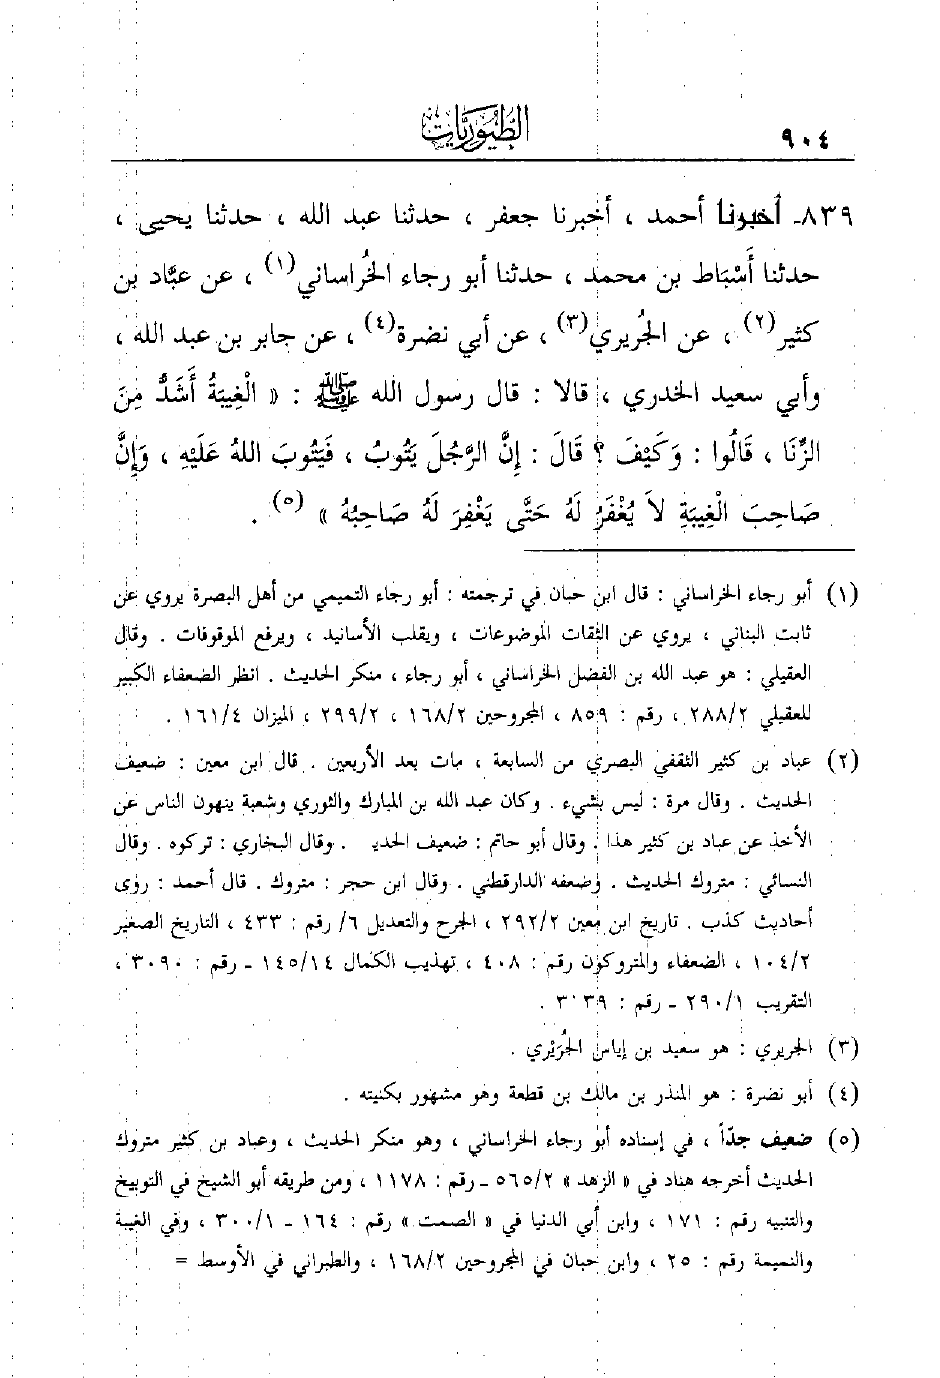 ٩٠٤ الطيوريات
٨٣٩- أخبرنا أحمد ، أخبرنا جعفر ، حدثنا عبد الله ، حدثنا يحيى ،
حدثنا أَسْبَاط بن محمد ، حدثنا أبو رجاء الخُراساني(١) ، عن عبَّاد بن
كثير(٢) ، عن الجُريري(٣) ، عن أبي نضرة(٤) ، عن جابر بن عبد الله ،
وأبي سعيد الخدري ، قالا : قال رسول الله ﷺ : « الْغِيبَةُ أَشَدُّ مِنَ
الزِّنَا ، قَالُوا : وَكَيْفَ ؟ قَالَ : إِنَّ الرَّجُلَ يَتُوبُ ، فَيَتُوبَ اللهُ عَلَيْهِ ، وَإِنَّ
صَاحِبَ الْغِيبَةِ لاَ يُغْفَرُ لَهُ حَتَّى يَغْفِرَ لَهُ صَاحِبُهُ » (٥) .
(١) أبو رجاء الخراساني : قال ابن حبان في ترجمته : أبو رجاء التميمي من أهل البصرة يروي عن
ثابت البناني ، يروي عن الثقات الموضوعات ، ويقلب الأسانيد ، ويرفع الموقوفات . وقال
العقيلي : هو عبد الله بن الفضل الخراساني ، أبو رجاء ، منكر الحديث . انظر الضعفاء الكبير
للعقيلي ٢٨٨/٢ ، رقم : ٨٥٩ ، المجروحين ١٦٨/٢ ، ٢٩٩/٢ ، الميزان ١٦١/٤ .
(٢) عباد بن كثير الثقفي البصري من السابعة ، مات بعد الأربعين . قال ابن معين : ضعيف
الحديث . وقال مرة : ليس بشيء . وكان عبد الله بن المبارك والثوري وشعبة ينهون الناس عن
الأخذ عن عباد بن كثير هذا . وقال أبو حاتم : ضعيف الحديـ . وقال البخاري : تركوه . وقال
النسائي : متروك الحديث . وضعفه الدارقطني . وقال ابن حجر : متروك . قال أحمد : رؤى
أحاديث كذب . تاريخ ابن معين ٢٩٢/٢ ، الجرح والتعديل ٦/ رقم : ٤٣٣ ، التاريخ الصغير
١٠٤/٢ ، الضعفاء والمتروكون رقم : ٤٠٨ ، تهذيب الكمال ١٤٥/١٤ ـ رقم : ٣٠٩٠ ،
التقريب ٢٩٠/١ ـ رقم :
(٣) الجريري : هو سعيد بن إياس الجُرَيْري .
(٤) أبو نضرة : هو المنذر بن مالك بن قطعة وهو مشهور بكنيته .
(٥) ضعيف جدّاً ، في إسناده أبو رجاء الخراساني ، وهو منكر الحديث ، وعباد بن كثير متروك
الحديث أخرجه هناد في « الزهد » ٥٦٥/٢ ـ رقم : ١١٧٨ ، ومن طريقه أبو الشيخ في التوبيخ
والتنبيه رقم : ١٧١ ، وابن أبي الدنيا في « الصمت » رقم : ١٦٤ ـ ٣٠٠/١ ، وفي الغيبة
والنميمة رقم : ٢٥ ، وابن حبان في المجروحين ١٦٨/٢ ، والطبراني في الأوسط =